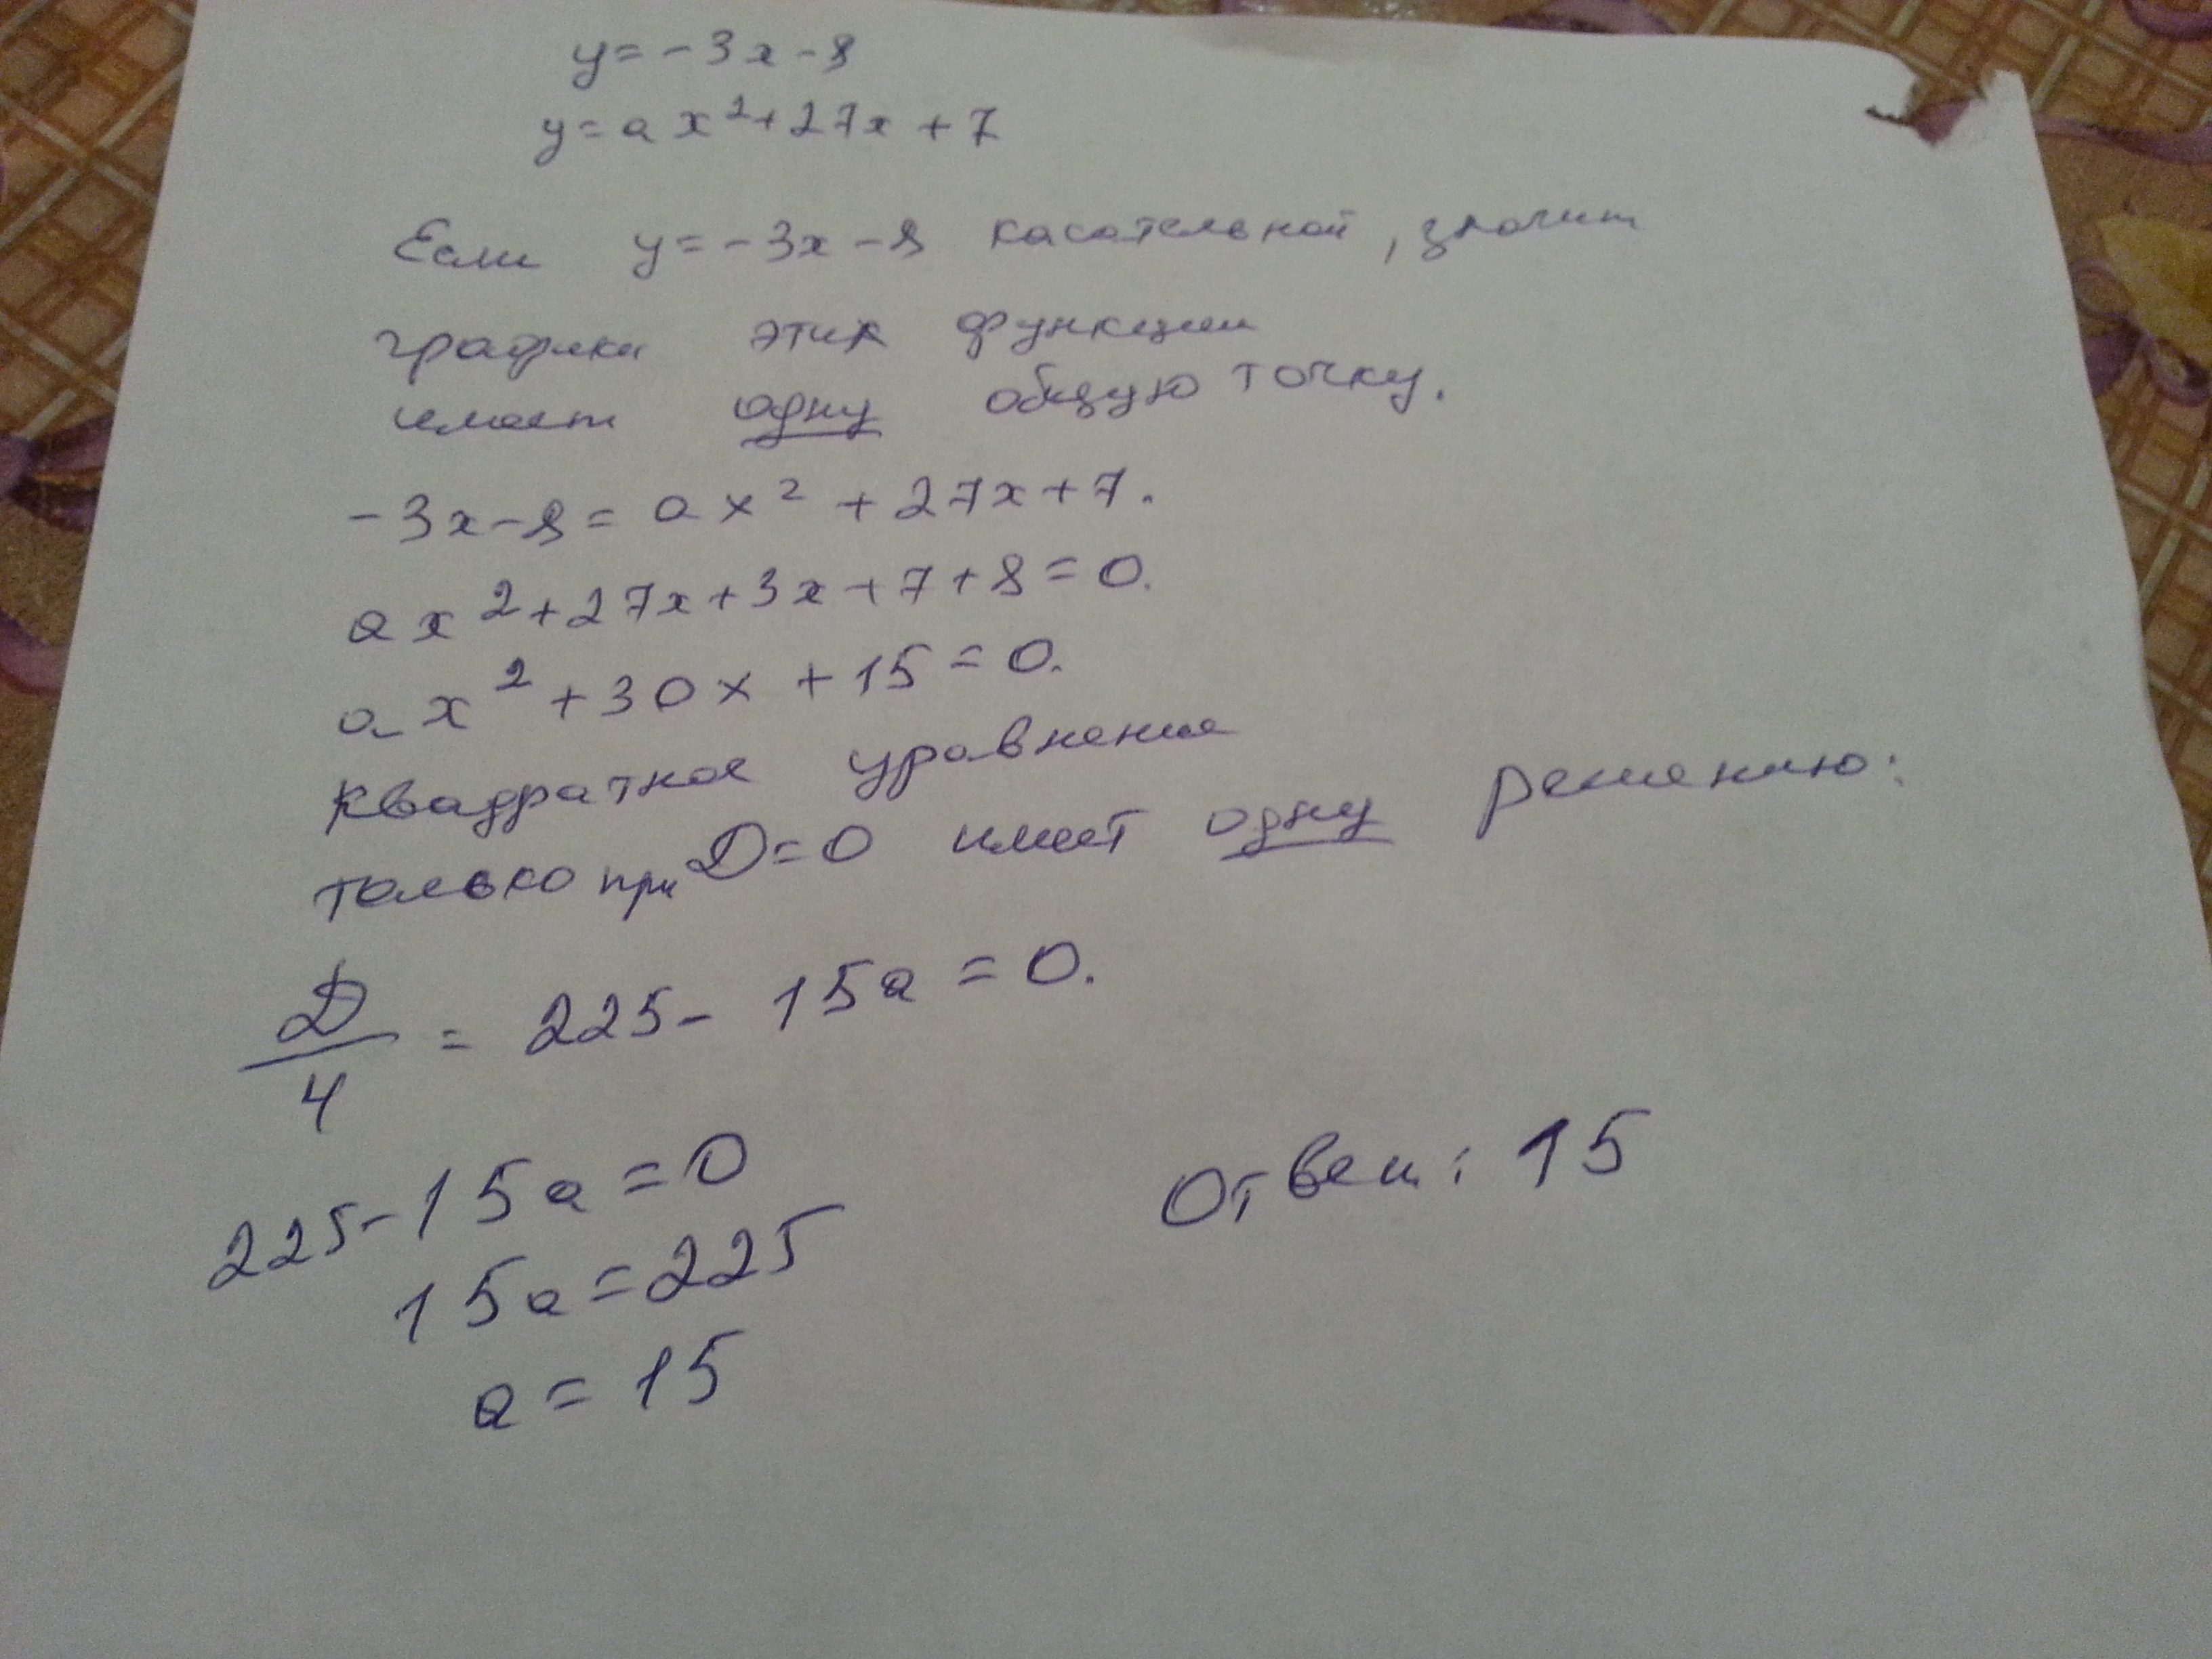 y = -3x - 8
y = ax² + 27x + 7
Если y = -3x - 8 касательной, значит
графики этих функции
имеет одну общую точку.
-3x - 8 = ax² + 27x + 7.
ax² + 27x + 3x + 7 + 8 = 0.
ax² + 30x + 15 = 0.
квадратное уравнение
только при D = 0 имеет одну решению:
D/4 = 225 - 15a = 0.
225 - 15a = 0
15a = 225
a = 15
Ответ: 15